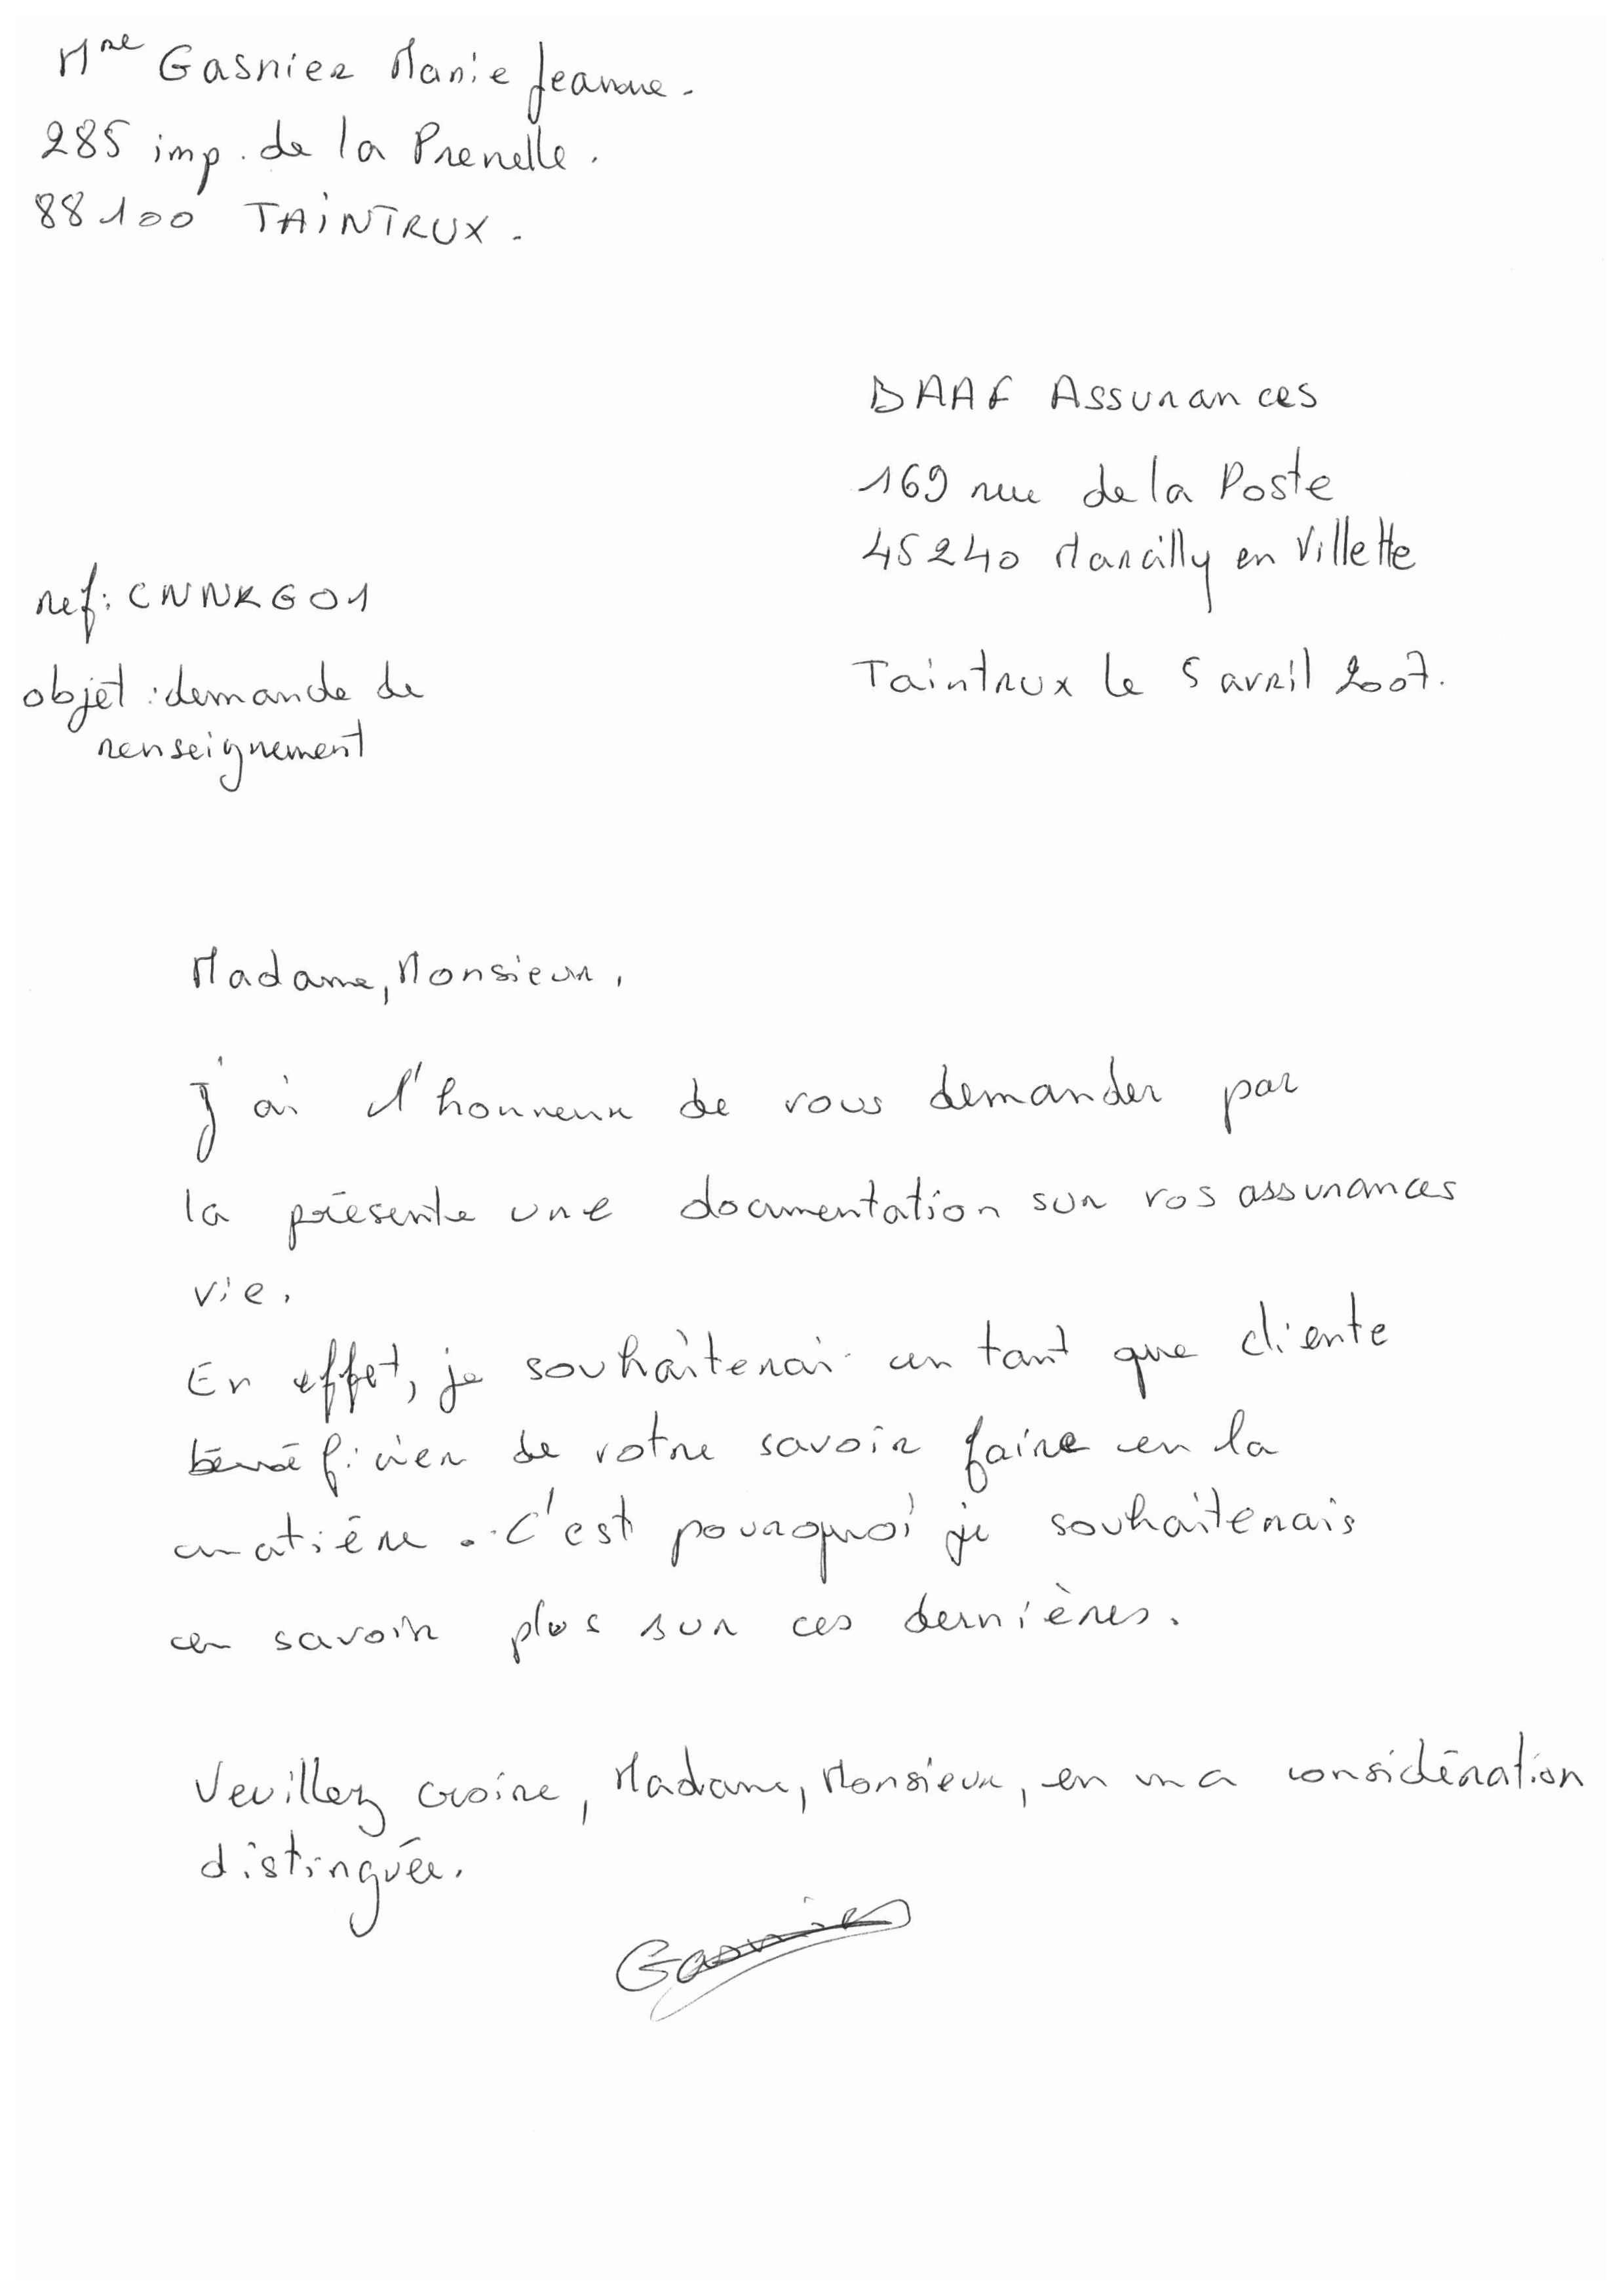 Mme Gasnier Marie Jeanne.
285 imp. de la Prenelle.
88100 TAINTRUX.
BAAF Assurances
169 rue de la Poste
45240 Marcilly en Villette
ref: CNNKG01
Taintrux le 5 avril 2007.
objet : demande de
renseignement
Madame, Monsieur,
J'ai l'honneur de vous demander par
la présente une documentation sur vos assurances
vie.
En effet, je souhaiterai en tant que cliente
bénéficier de votre savoir faire en la
matière. C'est pourquoi je souhaiterais
en savoir plus sur ces dernières.
Veuillez croire, Madame, Monsieur, en ma considération
distinguée.
Gasnier